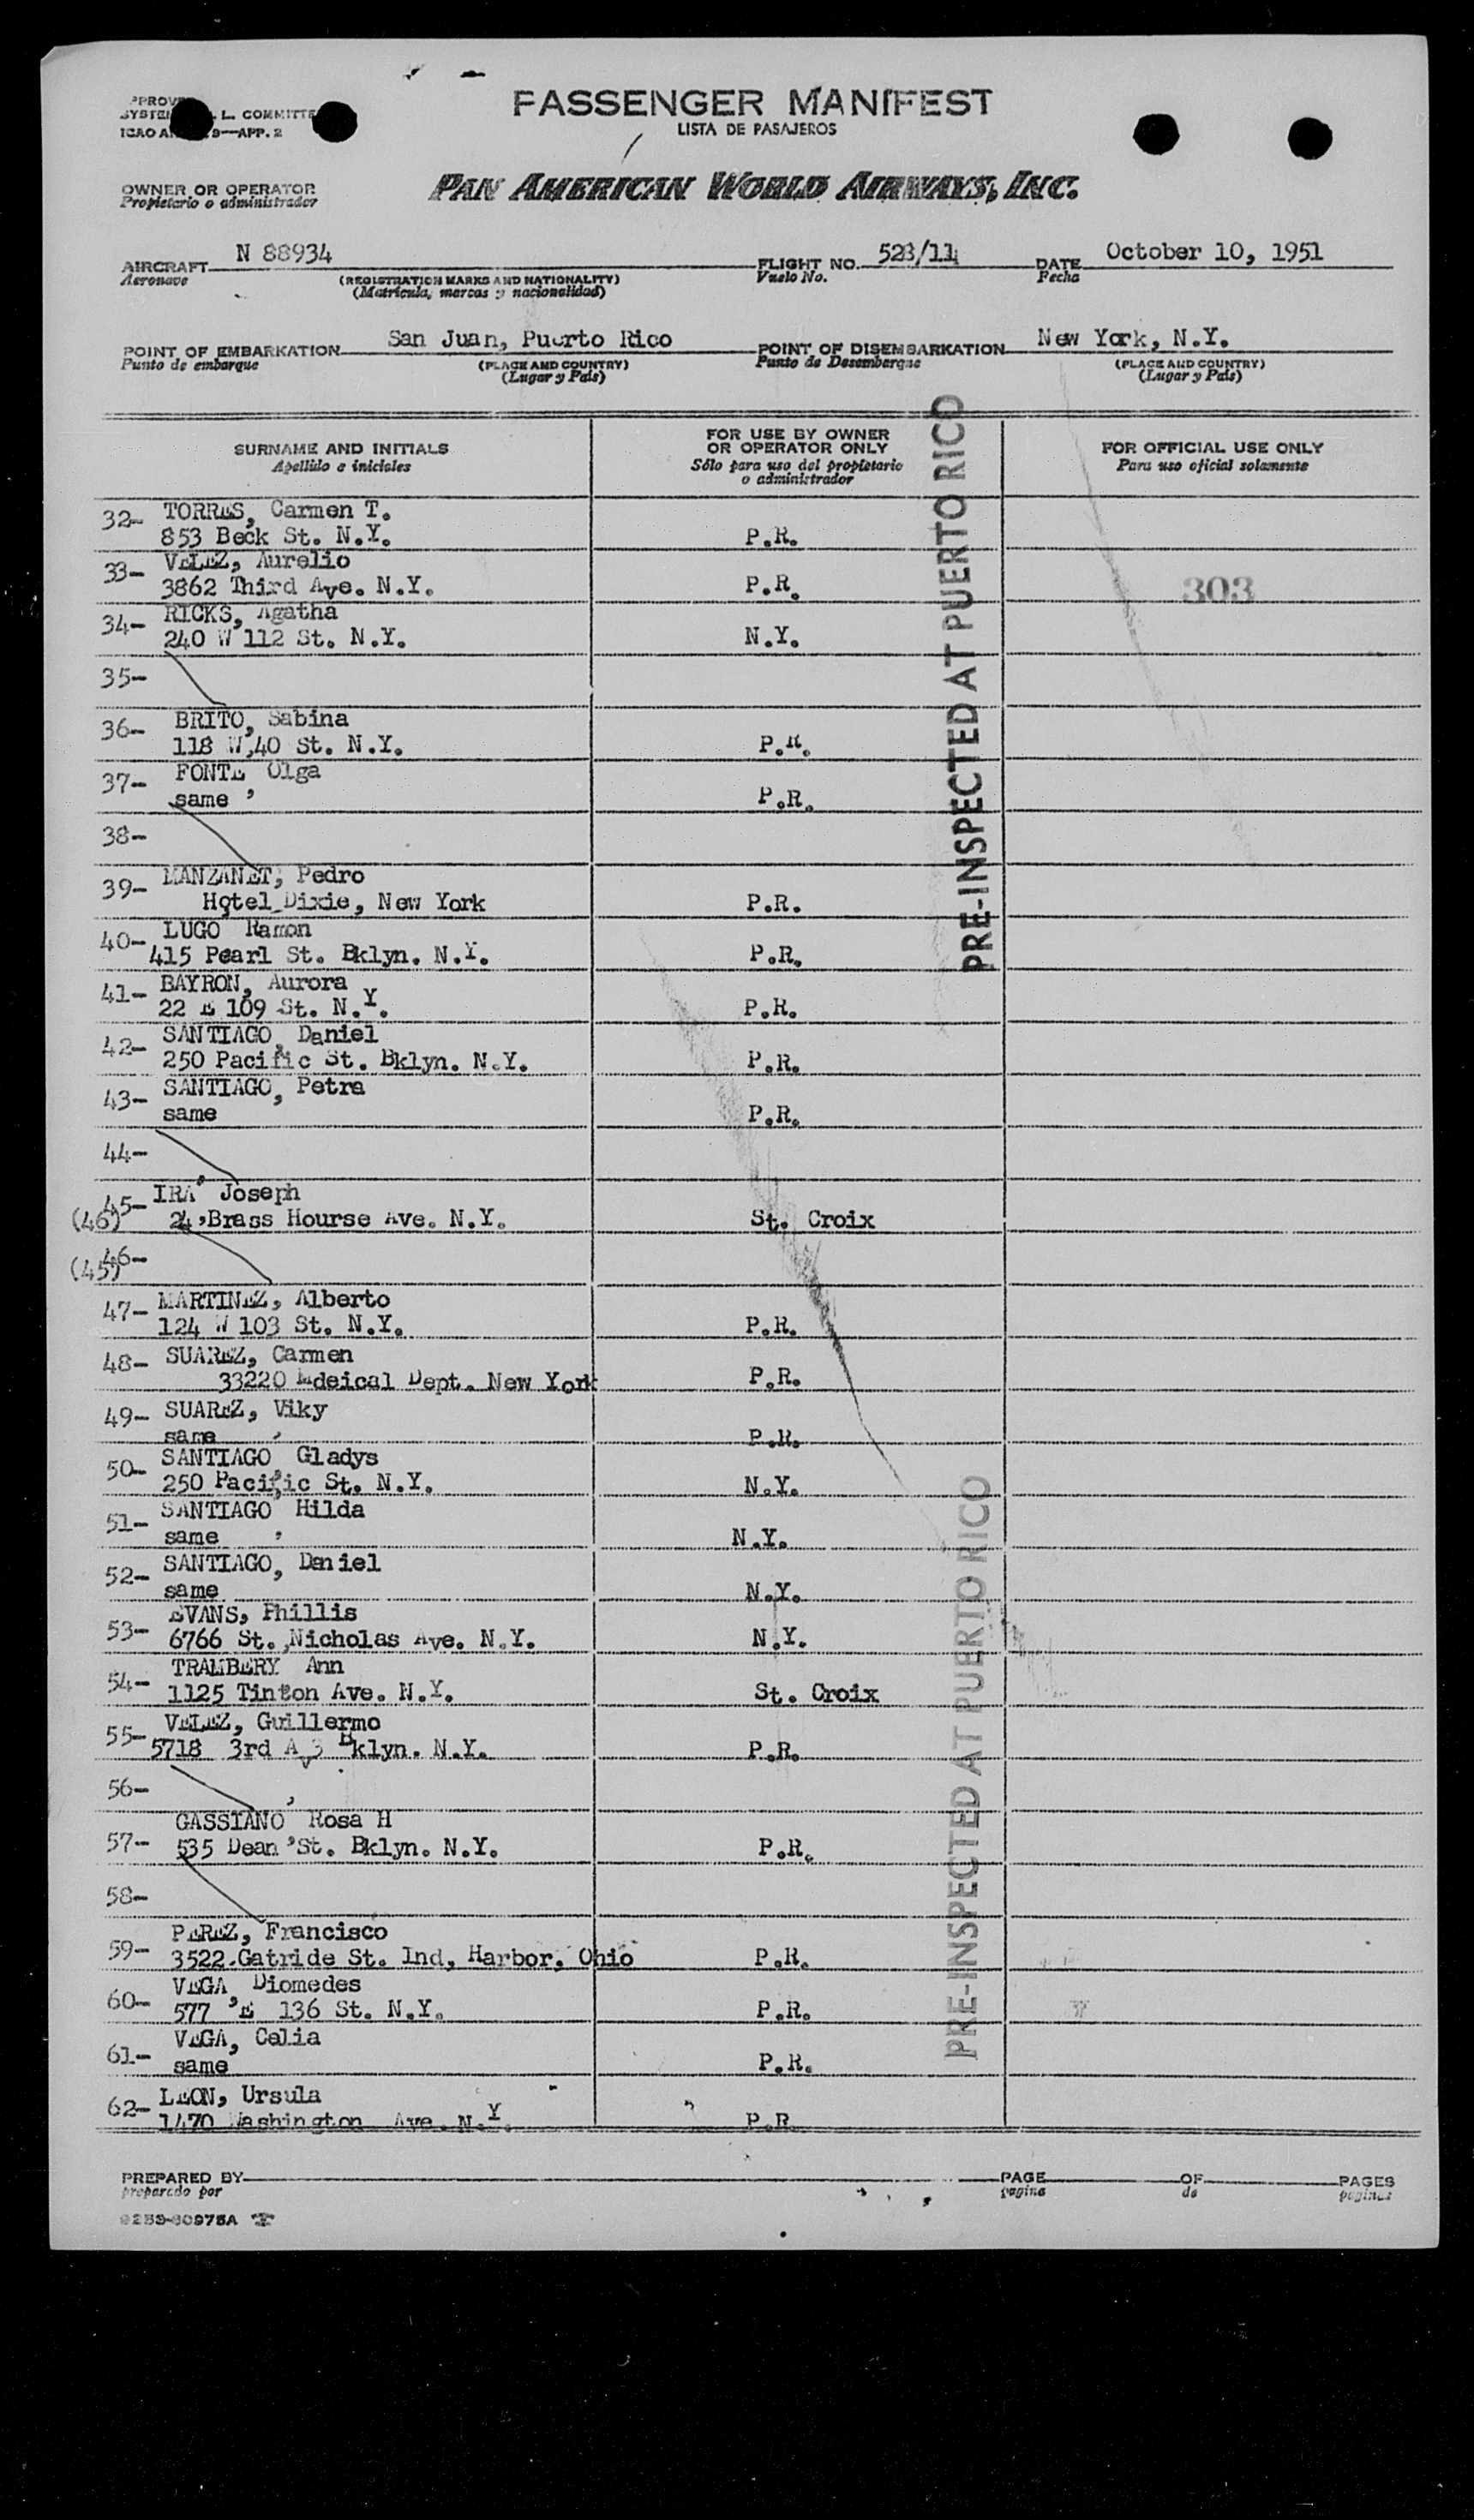 FASSENGER MANIFEST
LISTA DE PASAJEROS
L. COMMITTE
ICAO 9—APP. 2
OWNER OR OPERATOR
Propietario o administrador
PAN AMERICAN WORLD AIRWAYS, INC.
AIRCRAFT N 88934
Aeronave
(REGISTRATION MARKS AND NATIONALITY)
(Matrícula, marcas y nacionalidad)
FLIGHT NO. 523/11
Vuelo No.
DATE October 10, 1951
Fecha
POINT OF EMBARKATION San Juan, Puerto Rico
Punto de embarque
(PLACE AND COUNTRY)
(Lugar y País)
POINT OF DISEMBARKATION New York, N.Y.
Punto de Desembarque
(PLACE AND COUNTRY)
(Lugar y País)
SURNAME AND INITIALS
Apellido e iniciales
FOR USE BY OWNER
OR OPERATOR ONLY
Sólo para uso del propietario
o administrador
FOR OFFICIAL USE ONLY
Para uso oficial solamente
32- TORRES, Carmen T.
853 Beck St. N.Y. P.R.
33- VELEZ, Aurelio
3862 Third Ave. N.Y. P.R.
303
34- RICKS, Agatha
240 W 112 St. N.Y. N.Y.
35-
36- BRITO, Sabina
118 W 40 St. N.Y. P.R.
37- FONTE, Olga
same P.R.
38-
39- MANZANET, Pedro
Hotel Dixie, New York P.R.
40- LUGO Ramon
415 Pearl St. Bklyn. N.Y. P.R.
41- BAYRON, Aurora
22 E 109 St. N.Y. P.R.
42- SANTIAGO, Daniel
250 Pacific St. Bklyn. N.Y. P.R.
43- SANTIAGO, Petra
same P.R.
44-
45- IRA, Joseph
(46) 24 Brass Hourse Ave. N.Y. St. Croix
46-
(45)
47- MARTINEZ, Alberto
124 W 103 St. N.Y. P.R.
48- SUAREZ, Carmen
33220 Mdeical Dept. New York P.R.
49- SUAREZ, Viky
same P.R.
50- SANTIAGO, Gladys
250 Pacific St. N.Y. N.Y.
51- SANTIAGO, Hilda
same N.Y.
52- SANTIAGO, Daniel
same N.Y.
53- EVANS, Phillis
6766 St. Nicholas Ave. N.Y. N.Y.
54- TRAMBERY, Ann
1125 Tinton Ave. N.Y. St. Croix
55- VELEZ, Guillermo
5718 3rd Bklyn. N.Y. P.R.
56-
57- GASSIANO, Rosa H
535 Dean St. Bklyn. N.Y. P.R.
58-
59- PEREZ, Francisco
3522 Gatride St. Ind, Harbor, Ohio P.R.
60- VEGA, Diomedes
577 E 136 St. N.Y. P.R.
61- VEGA, Celia
same P.R.
62- LEON, Ursula
1470 Washington Ave. N.Y. P.R
PRE-INSPECTED AT PUERTO RICO
PRE-INSPECTED AT PUERTO RICO
PREPARED BY
preparado por
PAGE OF PAGES
pagina de paginas